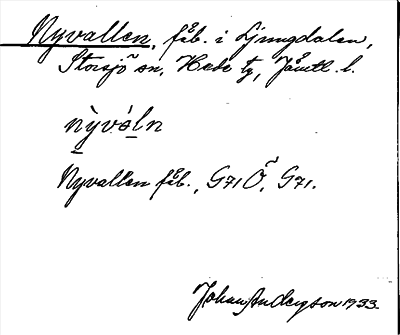 Nyvallen, fåb. i Ljungdalen,
Storsjö sn, Hede tg, Jämtl. l.
nỳváln
Nyvallen fåb., G71Ö, G71.
Johan Anderson 1933.